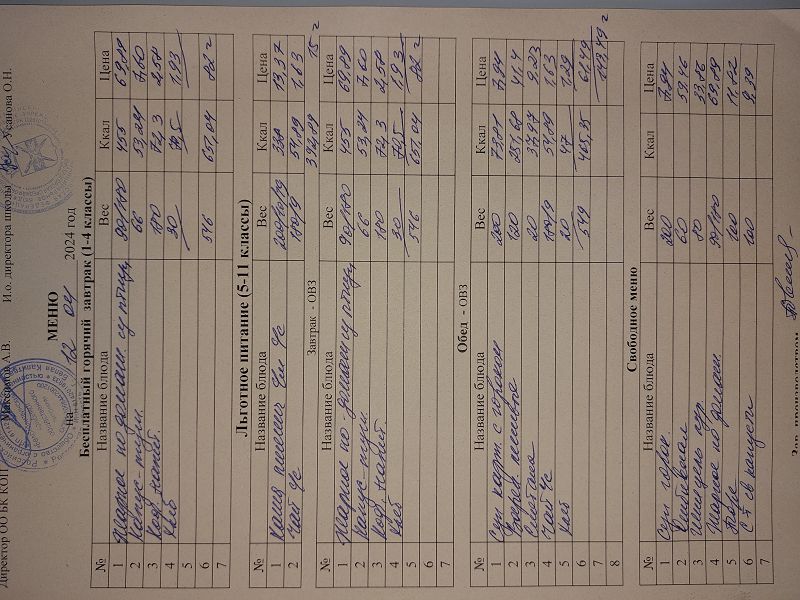 Директор ОО БК КОП Максимов А.В. И.о. директора школы Усанова О.Н.
МЕНЮ
на 12 04 2024 год
Бесплатный горячий завтрак (1-4 классы)
№ Название блюда Вес Ккал Цена
1 Жаркое по домашн. с птицы 90/100 455 69,89
2 Капус. туш. 66 53,24 7,60
3 Коф. напит. 180 72,3 2,58
4 Хлеб 30 70,5 1,93
5
6 546 651,04 82 г
7
Льготное питание (5-11 классы)
№ Название блюда Вес Ккал Цена
1 Каша 268 13,37
2 Чай 180/9 54,89 1,63
Завтрак - ОВЗ 322,89 15 г
№ Название блюда Вес Ккал Цена
1 Жаркое по домашн с птицы 90/100 455 69,89
2 Капус. туш. 66 53,24 7,60
3 Коф. напит. 180 72,3 2,58
4 Хлеб 30 70,5 1,93
5 546 651,04 82 г
6
7
Обед - ОВЗ
№ Название блюда Вес Ккал Цена
1 Суп карт. с горохом 200 73,81 7,94
2 120 251,68 41,4
3 Сметана 20 37,97 9,23
4 Чай 180/9 54,89 1,63
5 Хлеб 20 47 1,29
6 549 465,35 61,49
7
8
Свободное меню
№ Название блюда Вес Ккал Цена
1 Суп горох. 200 7,94
2 60
3 Шницель кур. 80 53,86
4 Жаркое по домашн. 90/100 69,89
5 Пюре 100 11,82
6 С-т св капусты 100 9,39
7
Зав. производством